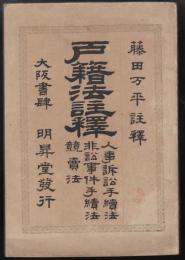 藤田万平註釋
戸籍法註釋
人事訴訟手續法
非訟事件手續法
競賣法
大阪書肆 明昇堂發行